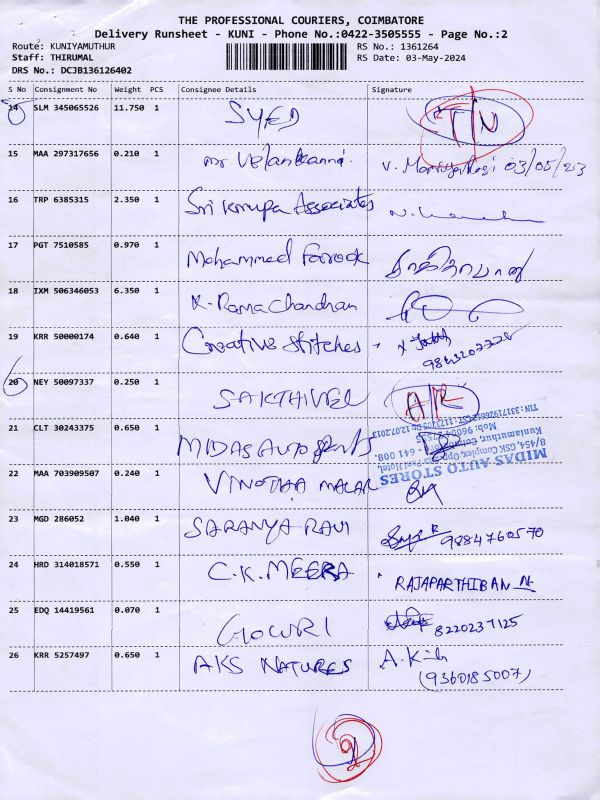 THE PROFESSIONAL COURIERS, COIMBATORE
Delivery Runsheet - KUNI - Phone No.:0422-3505555 - Page No.:2
Route: KUNIYAMUTHUR RS No.: 1361264
Staff: THIRUMAL RS Date: 03-May-2024
DRS No.: DCJB136126402
S No Consignment No Weight PCS Consignee Details Signature
14 SLM 345065526 11.750 1 SYED T/N
15 MAA 297317656 0.210 1 mr Velankanni. V. 03/05/23
16 TRP 6385315 2.350 1 Sri Krrupa Associates
17 PGT 7510585 0.970 1 Mohammed Farook
18 IXM 506346053 6.350 1 K. Rama Chandran
19 KRR 50000174 0.640 1 Creative Stitches
20 NEY 50097337 0.250 1 SAKTHIVEL A/R
21 CLT 30243375 0.650 1 MIDAS AUTO
MIDAS AUTO STORES
8/454, GSK Complex,
Kuniamuthur, Coimbatore - 641 008.
22 MAA 703909507 0.240 1 VINOTHA MALAR
23 MGD 286052 1.040 1 SARANYA RAVI 9884760570
24 HRD 314018571 0.550 1 C.K.MEERA RAJAPARTHIBAN
25 EDQ 14419561 0.070 1 GOWRI 8220237125
26 KRR 5257497 0.650 1 AKS NATURES A.
(9360185007)
2